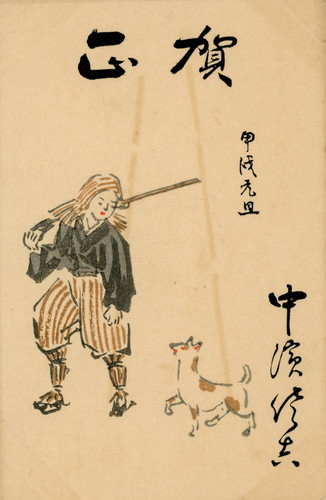 賀正
甲戌元旦
中濱